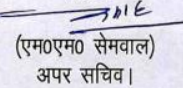 (एम0एम0 सेमवाल)
अपर सचिव।